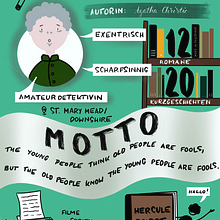 AUTORIN: Agatha Christie
EXENTRISCH
SCHARFSINNIG
12
ROMANE
20
KURZGESCHICHTEN
AMATEURDETEKTIVIN
@ ST. MARY MEAD/
DOWNSHIRE
MOTTO
THE YOUNG PEOPLE THINK OLD PEOPLE ARE FOOLS,
BUT THE OLD PEOPLE KNOW THE YOUNG PEOPLE ARE FOOLS.
HELLO!
FILME
HERCULE